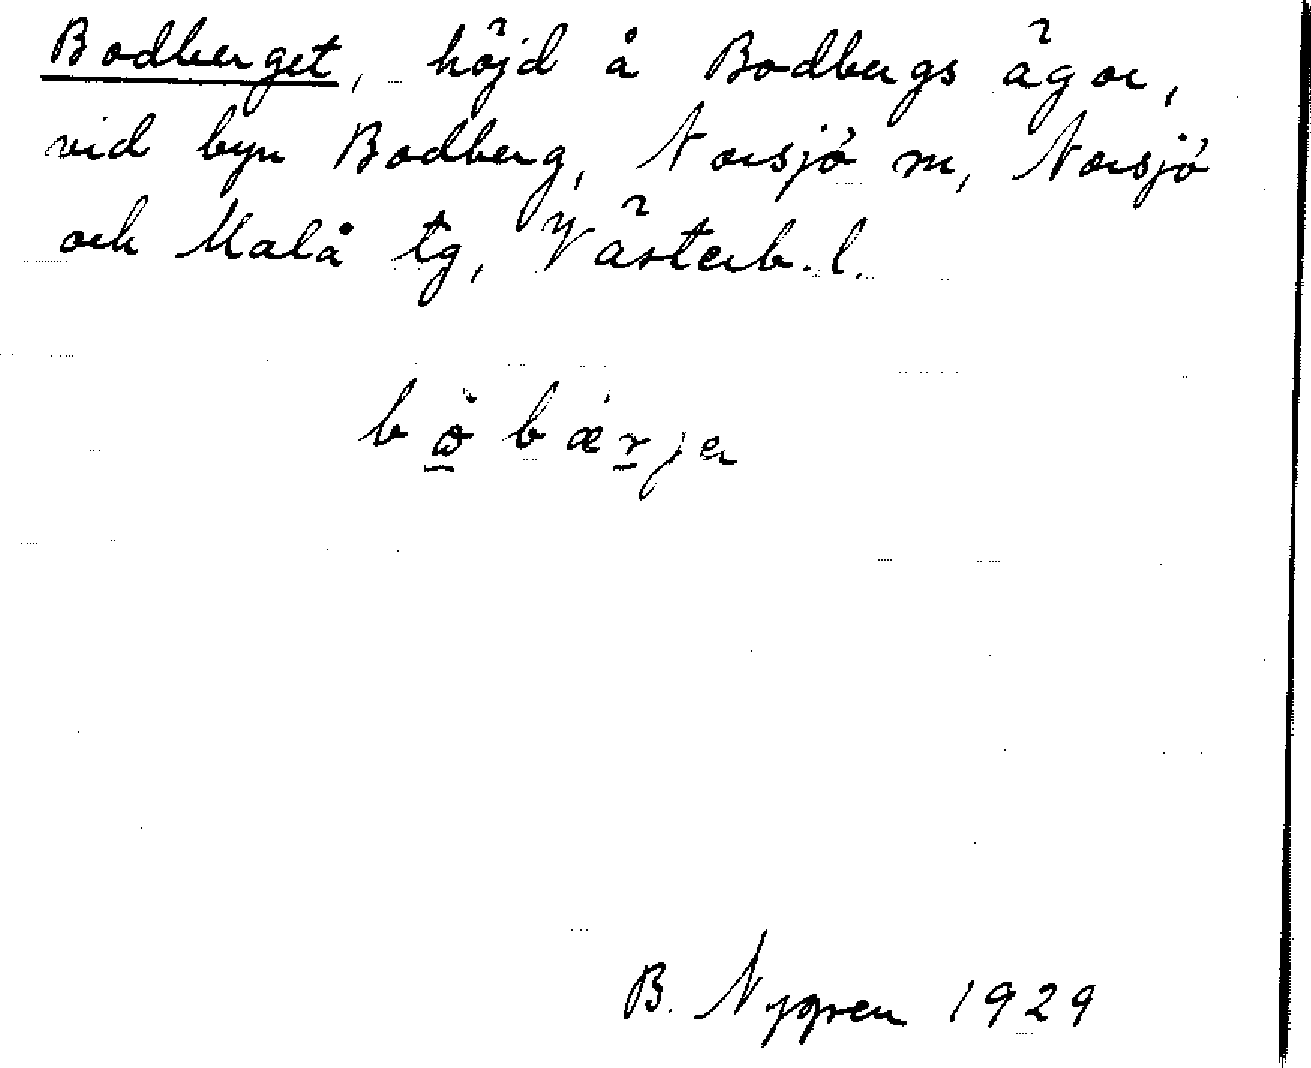 Bodberget, höjd å Bodbergs ägor,
vid byn Bodberg, Norsjö sn, Norsjö
och Malå tg, Västerb. l.
B. Nygren 1929